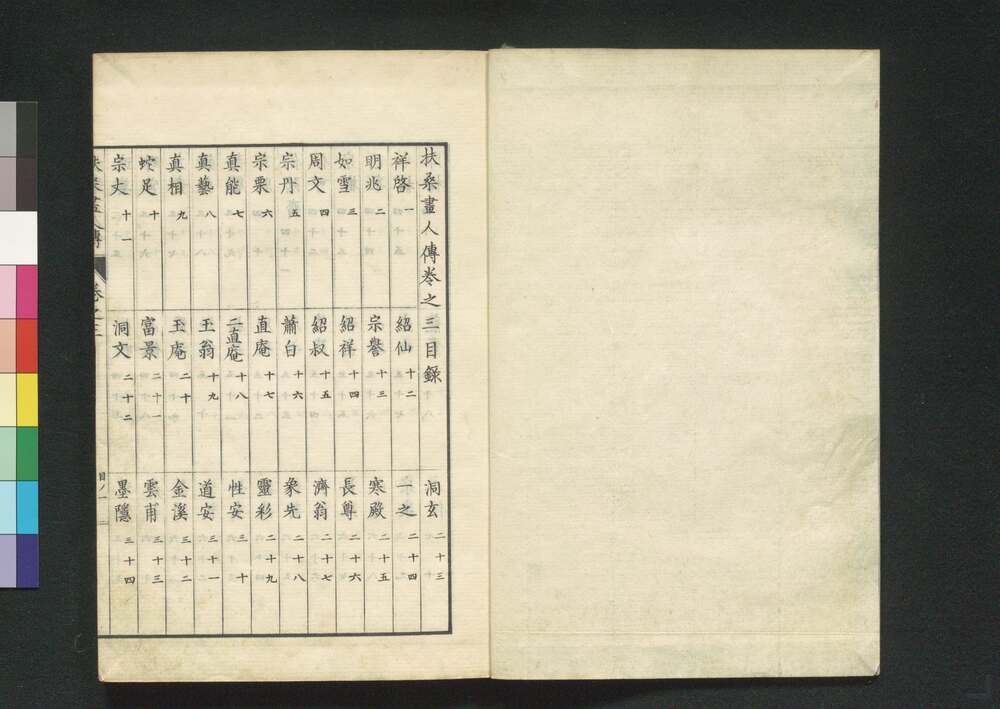 扶桑畫人傳卷之三目錄
祥啓 一
明兆 二
如雪 三
周文 四
宗丹 五
宗栗 六
真能 七
真藝 八
真相 九
蛇足 十
宗丈 十一
紹仙 十二
宗譽 十三
紹祥 十四
紹叔 十五
蕭白 十六
直庵 十七
二直庵 十八
玉翁 十九
玉庵 二十
富景 二十一
洞文 二十二
洞玄 二十三
一之 二十四
寒殿 二十五
長尊 二十六
濟翁 二十七
象先 二十八
靈彩 二十九
性安 三十
道安 三十一
金溪 三十二
雲甫 三十三
墨隱 三十四
扶桑畫人傳 卷之三 目ノ一